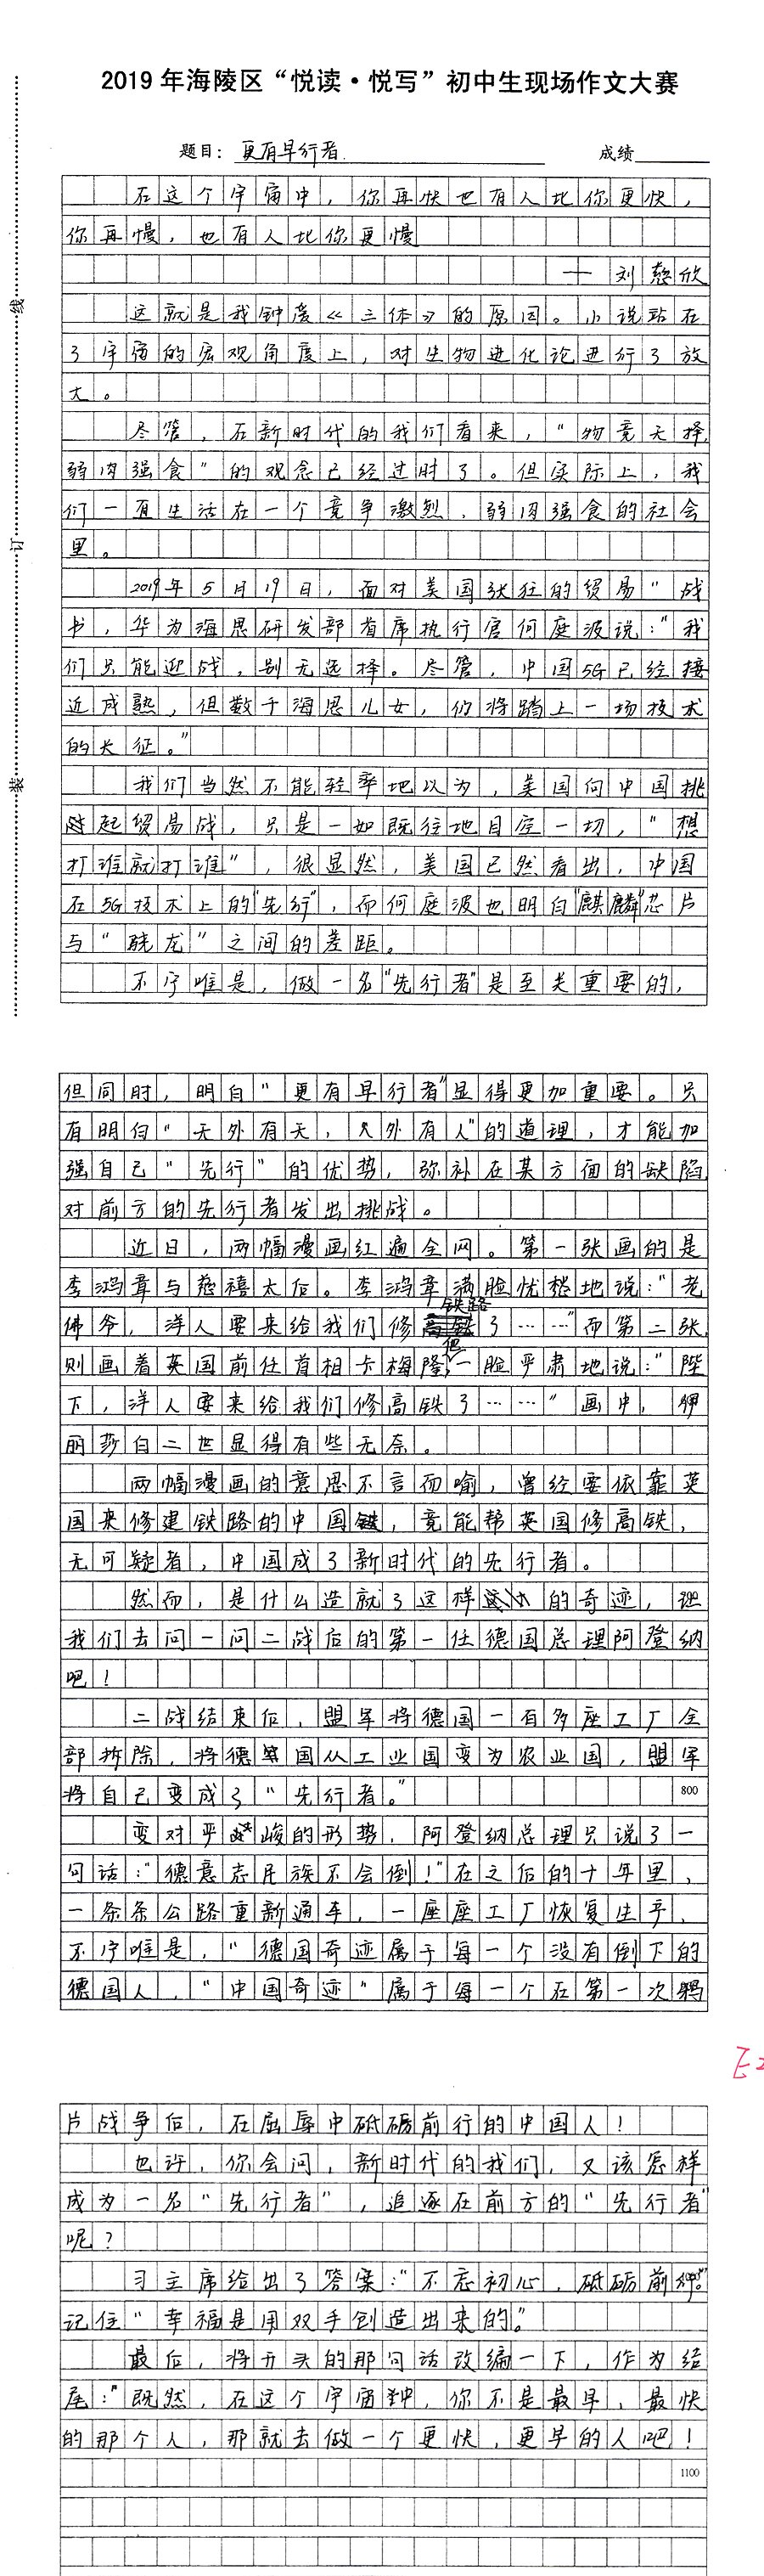 2019 年海陵区“悦读·悦写”初中生现场作文大赛
题目：更有早行者
成绩
在这个宇宙中，你再快也有人比你更快，
你再慢，也有人比你更慢
——刘慈欣
这就是我钟爱《三体》的原因。小说站在
了宇宙的宏观角度上，对生物进化论进行了放
大。
尽管，在新时代的我们看来，“物竞天择，
弱肉强食”的观念已经过时了。但实际上，我
们一直生活在一个竞争激烈，弱肉强食的社会
里。
2019年5月19日，面对美国张狂的贸易“战
书，华为海思研发部首席执行官何庭波说：“我
们只能迎战，别无选择。尽管，中国5G已经接
近成熟，但数千海思儿女，们将踏上一场技术
的长征。”
我们当然不能轻率地以为，美国向中国挑
起贸易战，只是一如既往地目空一切，“想
打谁就打谁”，很显然，美国已然看出，中国
在5G技术上的“先行”，而何庭波也明白“麒麟”芯片
与“骁龙”之间的差距。
不宁唯是，做一名“先行者”是至关重要的，
但同时，明白“更有早行者”显得更加重要。只
有明白“天外有天，人外有人”的道理，才能加
强自己“先行”的优势，弥补在某方面的缺陷，
对前方的先行者发出挑战。
近日，两幅漫画红遍全网。第一张画的是
李鸿章与慈禧太后。李鸿章满脸忧愁地说：“老
佛爷，洋人要来给我们修铁路了……”而第二张，
则画着英国前任首相卡梅隆，他一脸严肃地说：“陛
下，洋人要来给我们修高铁了……”画中，伊
丽莎白二世显得有些无奈。
两幅漫画的意思不言而喻，曾经要依靠英
国来修建铁路的中国，竟能帮英国修高铁，
无可疑者，中国成了新时代的先行者。
然而，是什么造就了这样的奇迹，让
我们去问一问二战后的第一任德国总理阿登纳
吧！
二战结束后，盟军将德国一百多座工厂全
部拆除，将德国从工业国变为农业国，盟军
将自己变成了“先行者。”
800
变对严峻的形势，阿登纳总理只说了一
句话：“德意志民族不会倒！”在之后的十年里，
一条条公路重新通车，一座座工厂恢复生产，
不宁唯是，“德国奇迹属于每一个没有倒下的
德国人，“中国奇迹”属于每一个在第一次鸦
片战争后，在屈辱中砥砺前行的中国人！
也许，你会问，新时代的我们，又该怎样
成为一名“先行者”，追逐在前方的“先行者”
呢？
习主席给出了答案：“不忘初心，砥砺前行。”
记住“幸福是用双手创造出来的。”
最后，将开头的那句话改编一下，作为结
尾：“既然，在这个宇宙中，你不是最早、最快
的那个人，那就去做一个更快，更早的人吧！
1100